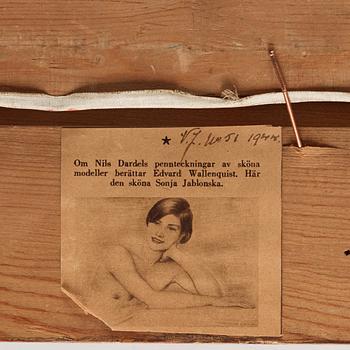 V.J. No 51 19
Om Nils Dardels pennteckningar av sköna
modeller berättar Edvard Wallenquist. Här
den sköna Sonja Jablonska.